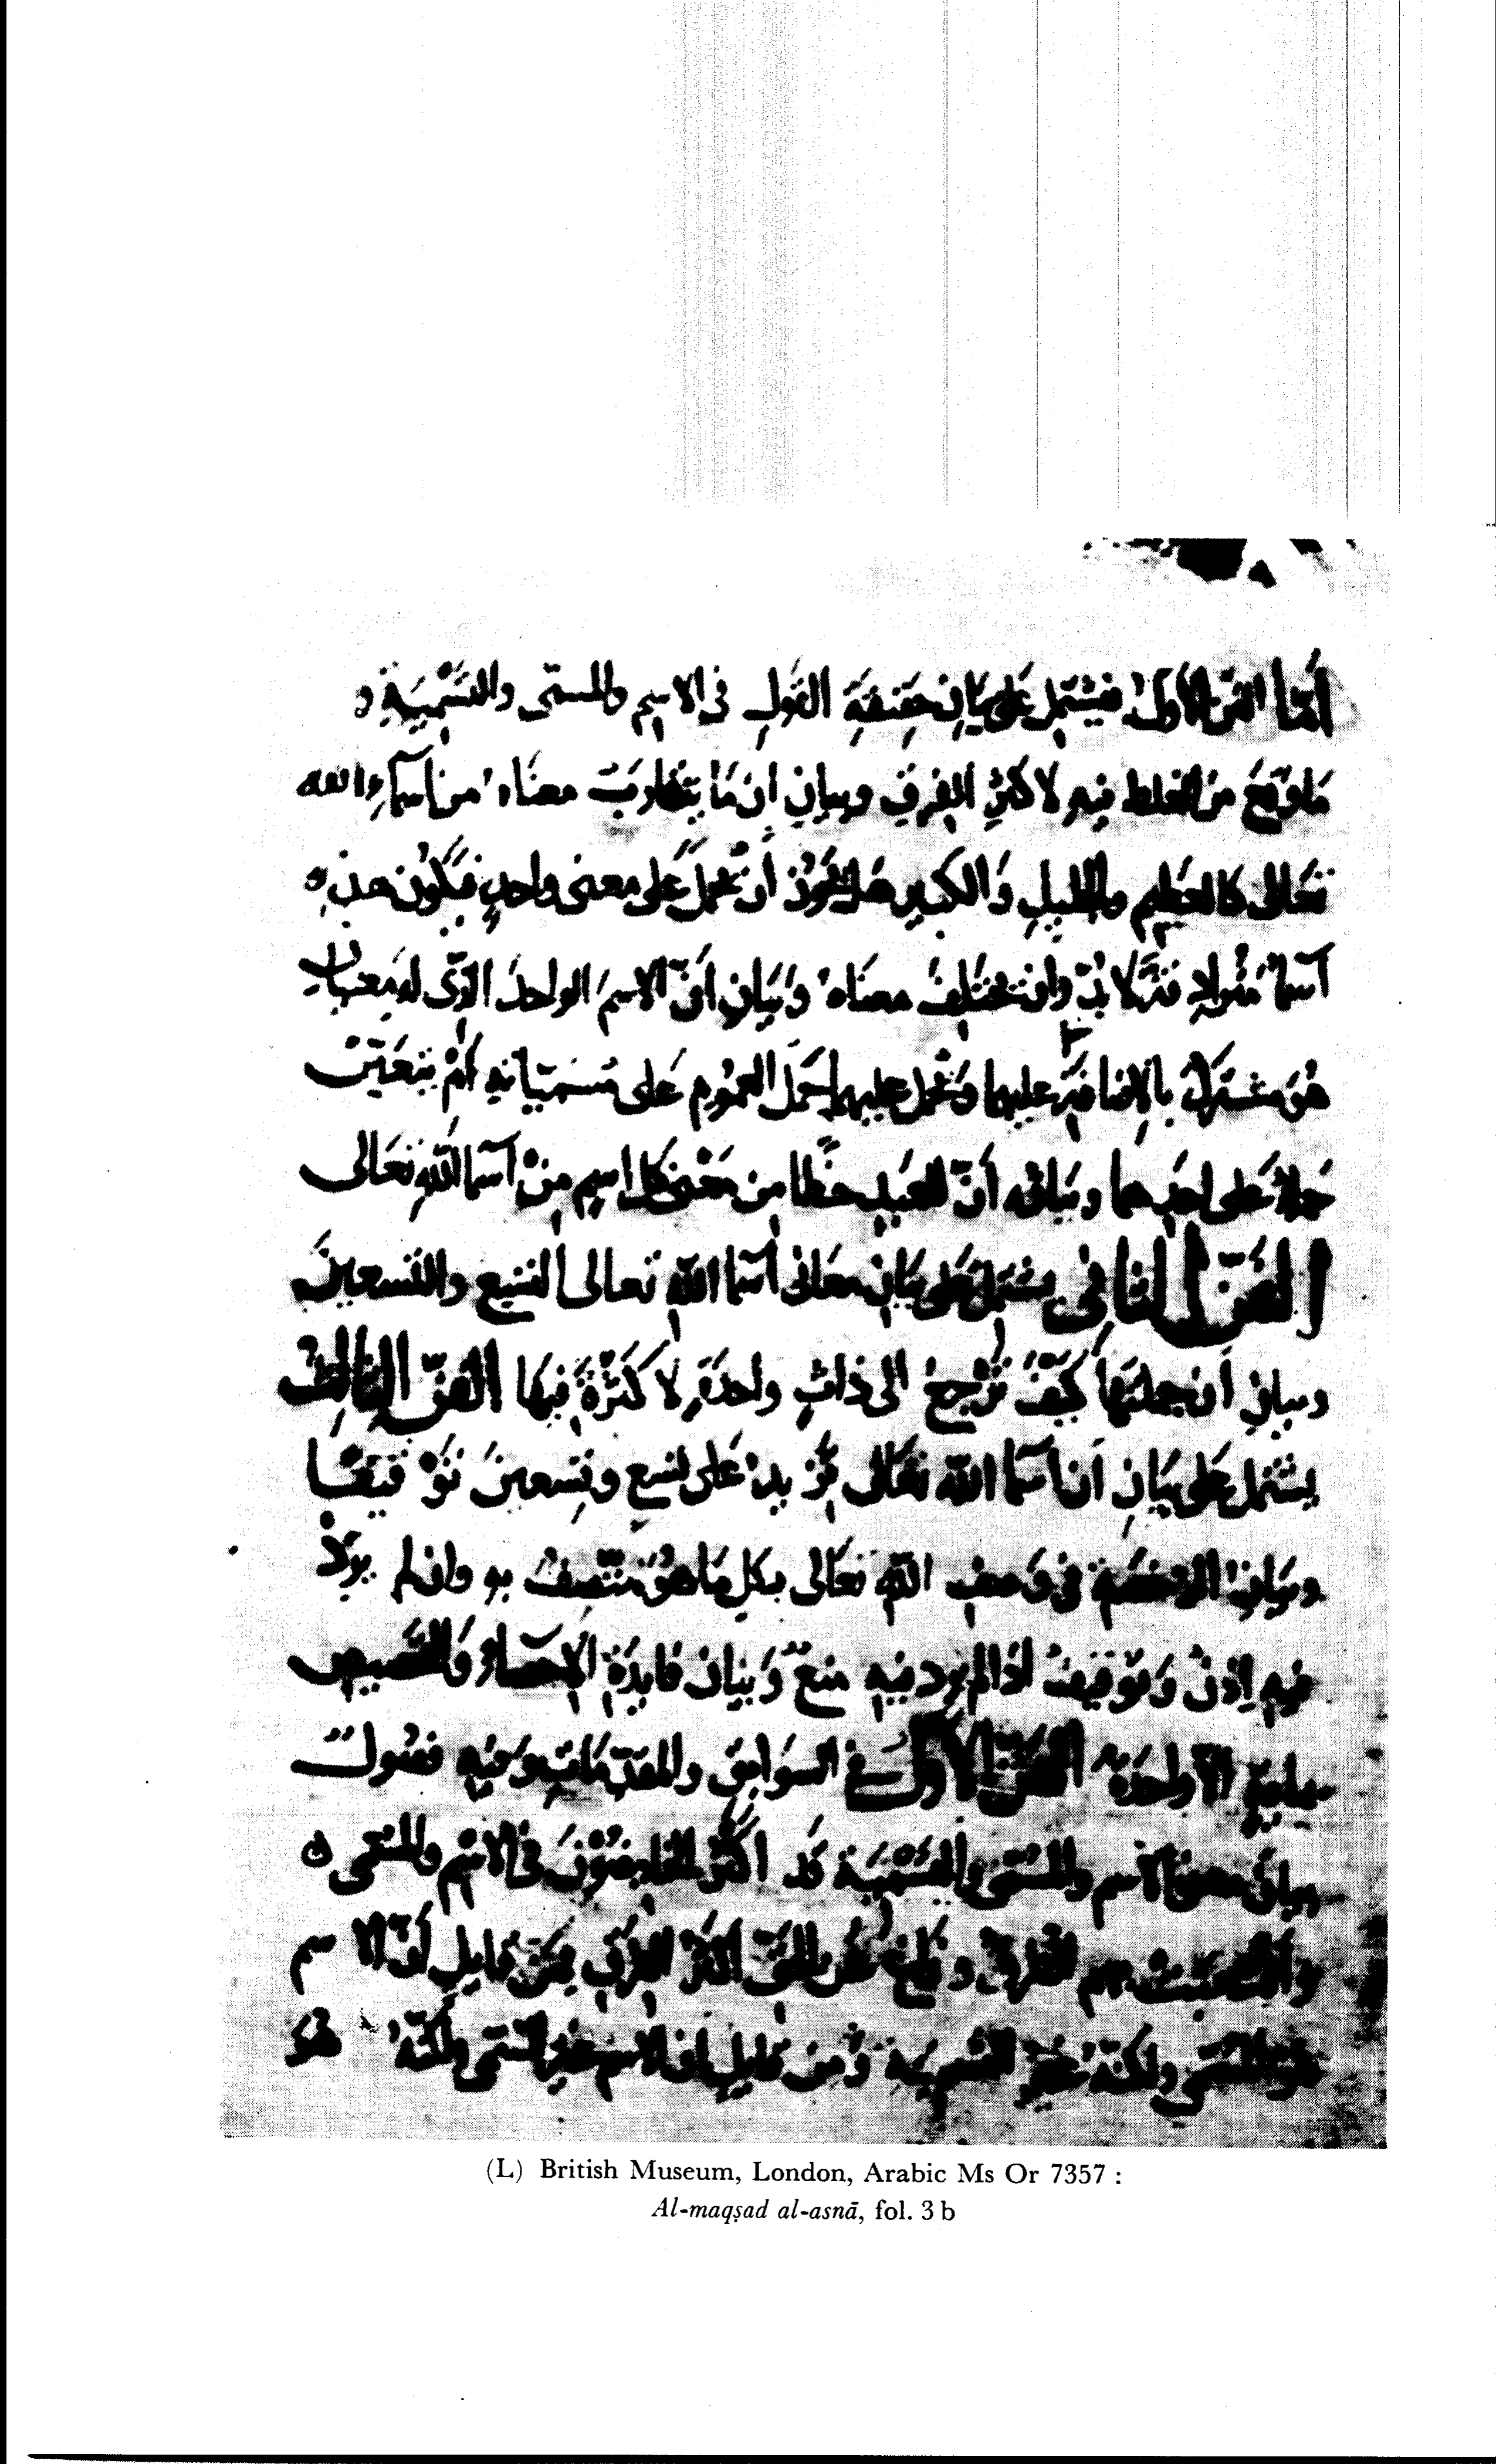 أمّا الفنّ الأوّل فيشتمل على بيانِ حقيقةِ القولِ في الاسمِ والمسمّى والتسْمِيَةِ و
مَا وقَعَ من الغلط فيه لاكثرِ الفِرقِ وبيانِ ان مَا يتقاربُ معنَاهُ من اسمآءِ الله
تعَالى كالعَظِيمِ والجليلِ وَالكبيرِ هل يجُوز أن تحمل عَلى معنى واحدٍ فيكُون هذهِ
اسما
وان تختلفُ معنَاهُ وَبَيانِ انّ الاسمَ الواحدَ الذّى له معنيان
هُوَ مشتركٌ بالاضافةِ عليهما وتحمل عليهما حَملَ العمُومِ عَلى مُسمّيَاتِه أمْ يتعَيّن
حملاً عَلى احدِهما وبيانِه أنّ للعبدِ حظًا مِن مَعْنى كل اسمٍ مِنْ آسما اللهِ تعَالى
الفنّ الثانى يشتمل عَلى بيَانِ معَانى اسما اللهِ تعالى التسع والتسعينَ
وبيانِ أن جملتهَا كيفَ تَرْجِعُ الى ذاتٍ واحدَةٍ لا كَثْرَةَ فيهَا الفنّ الثالث
يشتمل عَلى بيَانِ أن اسما اللهَ تعَالى تَزِيدُ عَلى تسع وتِسعينَ تَوْقيفًا
وبيَانِ الرخصَةِ فى وَصفِ اللهِ تعَالى بكلِ مَا هُوَ متّصِفُ بهِ وان لم يردْ
فيهِ اِذنٌ وَتَوْقيفٌ اذا لم يرد فيهِ منعٌ وَبيان فايدَةِ الإحصَاءِ وَالتخصيص
بمايةٍ الا واحدَة الفنّ الأوّل فى السوَابقِ والمقدّمَاتِ وَفيهِ فصُولٌ
بيان معنى الاسم والمسمّى والتسْمِيَة قد اكثَر الخايضُوْنَ فى الاسْمِ والمسمّى
وتشعّبت بهم الطرق وزاغ عَن الحقّ اكثَر الفِرَقِ فمِنْ قايلٍ أنّ الاسم
هو المسمّى ولكنّه غيْرُ التسمِيَةِ وَمِن قايلٍ ان الاسم غير المسمّى ولكنّهُ هُوَ
(L) British Museum, London, Arabic Ms Or 7357 :
Al-maqṣad al-asnā, fol. 3 b